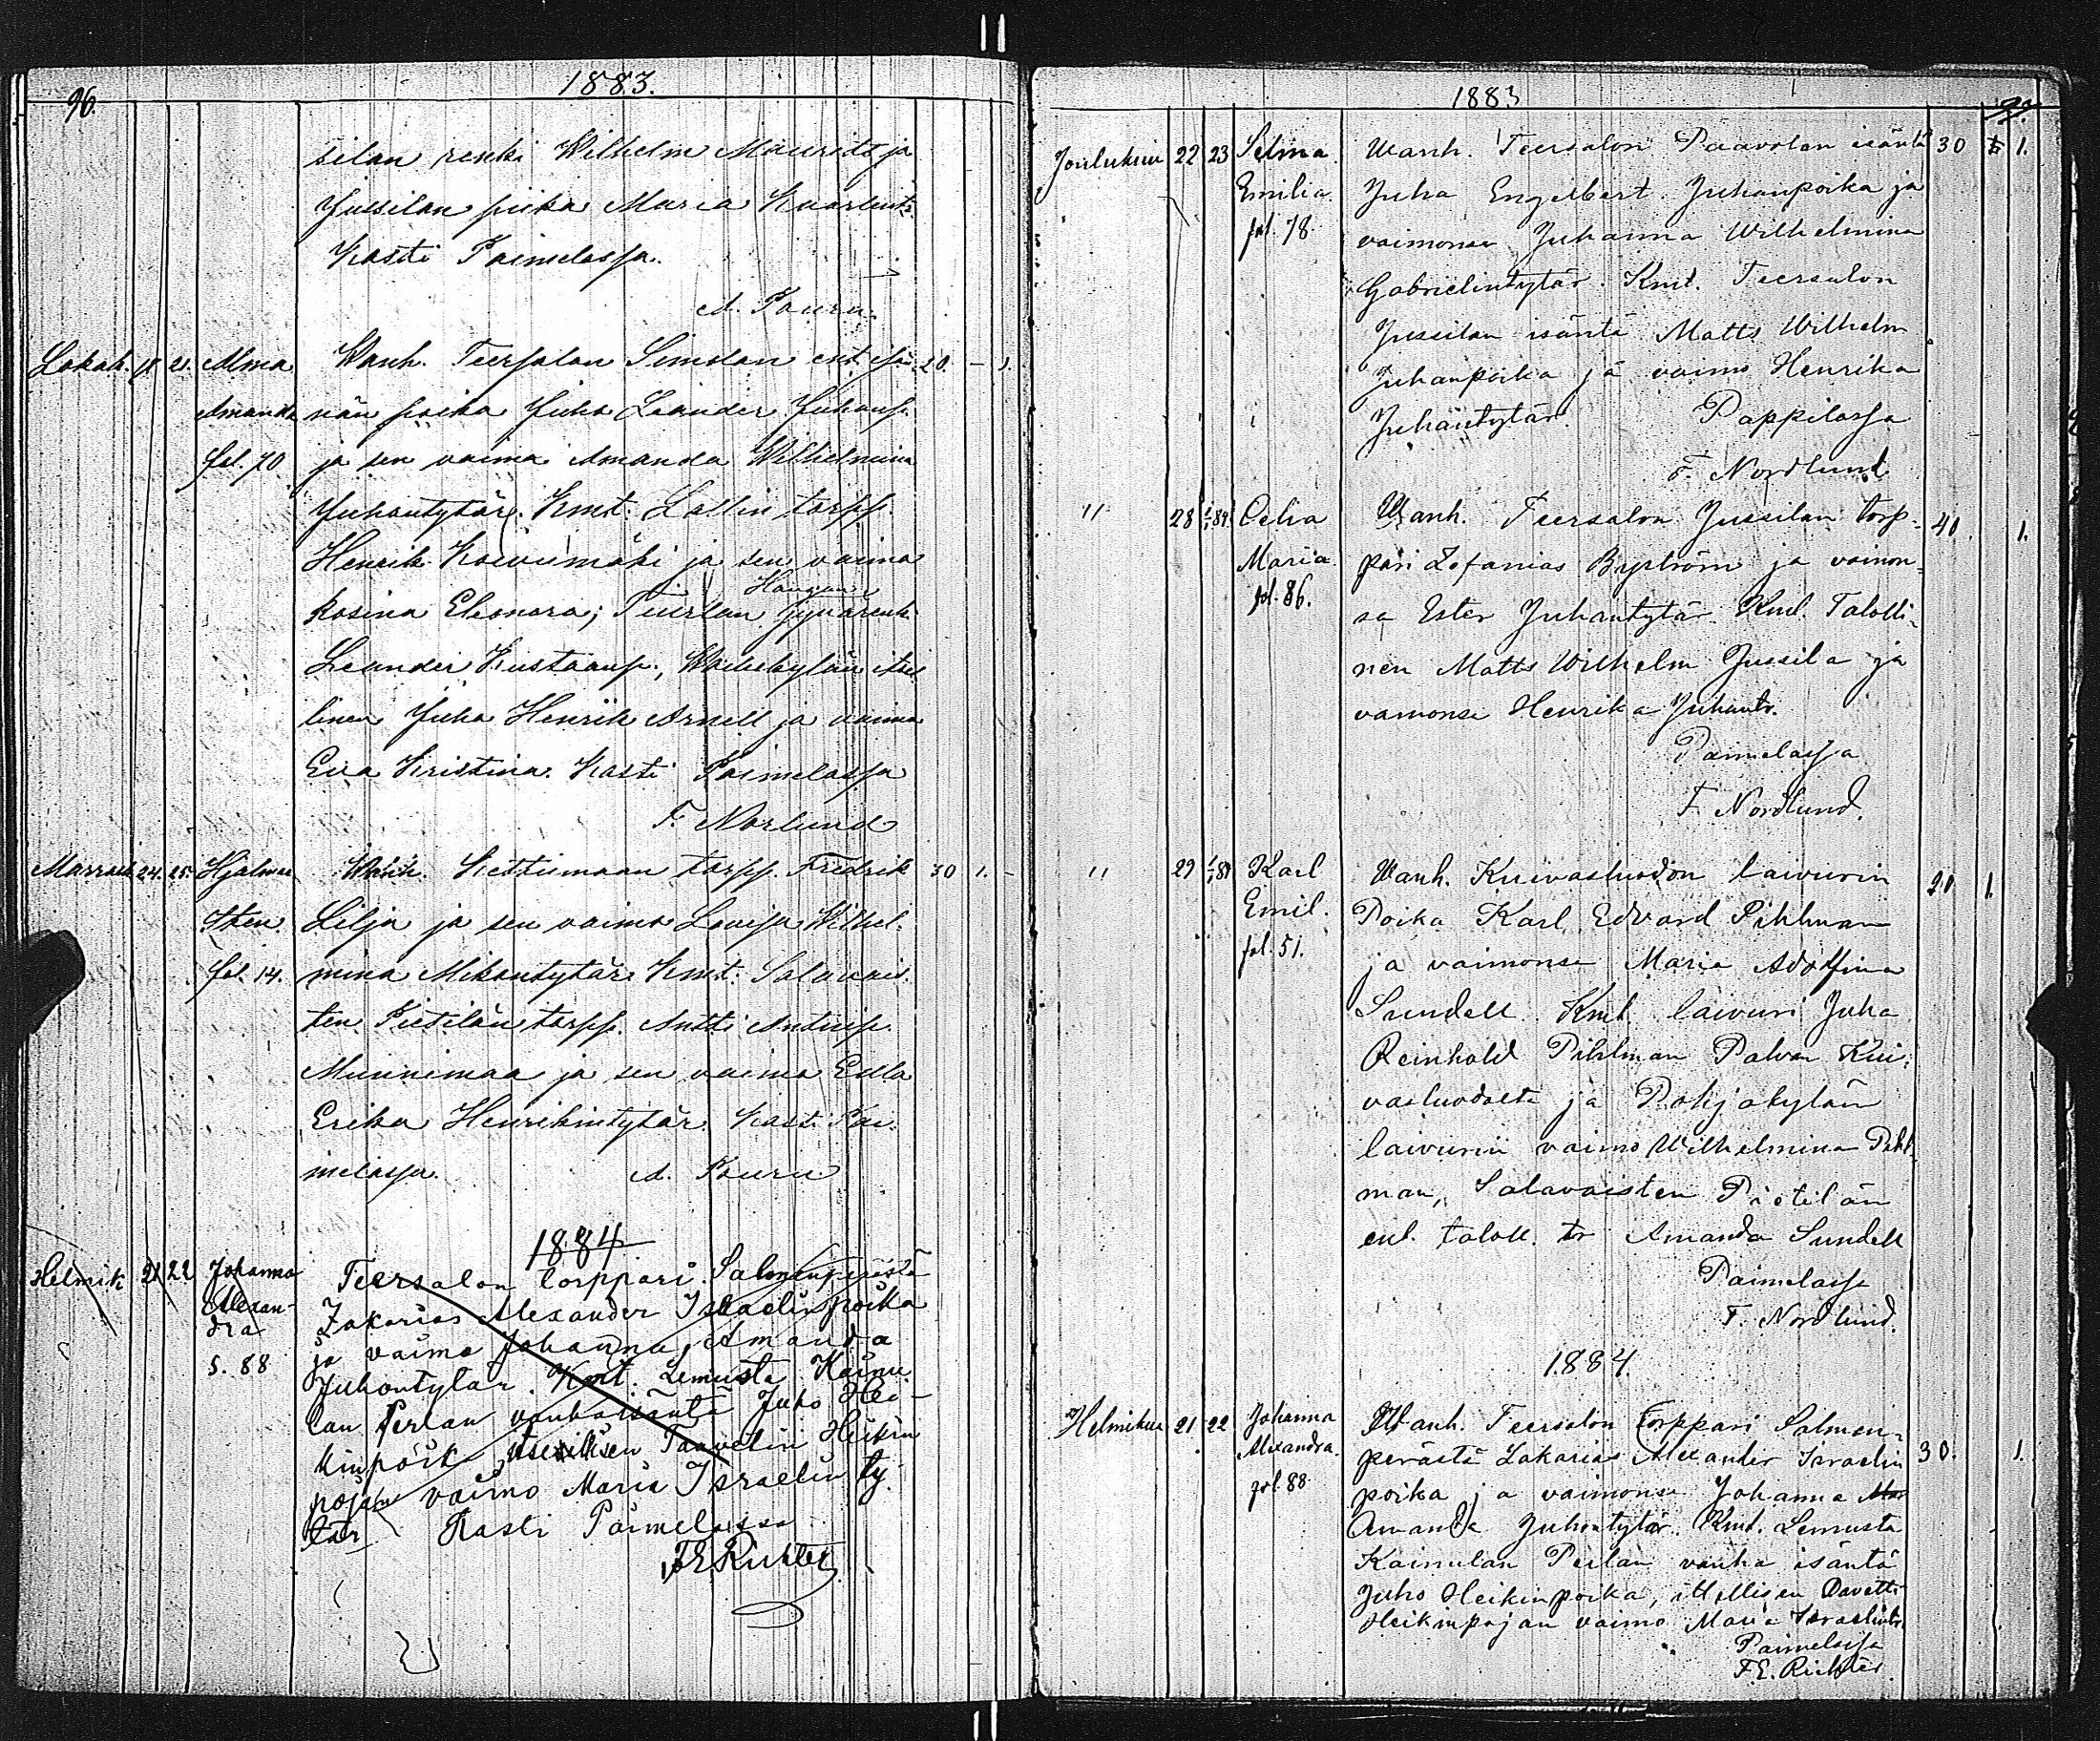 96.
1883.
silan renki Wilhelm Mauritz ja
Jussilan piika Maria Kaarlent.
Kasti Paimelassa.
A. Pauru.
Lokak. 18 21. Alma Wanh. Teersalon Simolan ent. isän- 20. - 1.
Amanda nän poika Juho Leander Juhanp.
fol. 70 ja sen vaimo Amanda Wilhelmina
Juhontytär. Kmt. Lallin torpp.
Henrik Koivumäki ja sen vaimo
Rosina Eleonora;
Leander Kustaanp.,
linen Juha Henrik Arnell ja vaimo
Eva Kristina. Kasti Paimelassa
F. Norlund
Marrask. 24. 25. Hjalmar Wanh. Kettumaan torpp. Fredrik 30 1. -
Sten. Lilja ja sen vaimo Lovisa Wilhel-
fol. 14. mina Mikontytär. Kmt. Salavais-
ten Pietilän torpp. Antti Antinp.
Munnimaa ja sen vaimo Edla
Erika Henrikintytär. Kasti Pai-
melassa. A. Pauru
1884
Helmik 21 22 Johanna Teersalon torppari Salmenperästä
Alexan- Zakarias Alexander Israelinpoika
dra ja vaimo Johanna Amanda
s. 88 Juhontytär. Kmt. Lemusta Kainu
lan Perlan vanhaisäntä Juho Hei-
kinpoik Itselliksen Taavetin Heikin
pojan vaimo Maria Israelin ty-
tär Kasti Paimelassa
F E Richter
1883
97.
Joulukuu 22 23 Selma Wanh. Teersalon Paavolan isäntä 30 1.
Emilia Juha Engelbert Juhanpoika ja
fol. 78 vaimonsa Juhanna Wilhelmina
Gabrielintytär. Kmt. Teersalon
Jussilan isäntä Matts Wilhelm
Juhanpoika ja vaimo Henrika
Juhantytär. Pappilassa
F. Nordlund
" 28 1/1 84 Celia Wanh. Teersalon Jussilan torp- 40. 1.
Maria pari Zefanias Byström ja vaimon-
fol. 86. sa Ester Juhantytär. Kmt. Talolli-
nen Matts Wilhelm Jussila ja
vaimonsa Henrika Juhantr.
Paimelassa
F. Nordlund.
" 29 1/1 84 Karl Wanh. Kuivasluodon laivurin 20 1.
Emil. Poika Karl Edvard Pihlman
fol. 51. ja vaimonsa Maria Adolfina
Sundell. Kmt. laivuri Juha
Reinhold Pihlman Palvan Kui-
vasluodosta ja Pohjakylän
laivurin vaimo Wilhelmina Pihl-
man, Salavaisten Pietilän
ent. taloll. tr Amanda Sundell
Paimelassa
F. Nordlund.
1884.
Helmikuu 21 22 Johanna Wanh. Teersalon torppari Salmen-
Alexandra perästä Zakarias Alexander Israelin 30. 1.
fol. 88 poika ja vaimonsa Johanna
Amanda Juhontytär. Kmt. Lemusta
Kainulan Perlan vanha isäntä
Juho Heikinpoika, itsellisen Davetti
Heikinpojan vaimo Maria Israelintr.
Paimelassa
F.E. Richter.